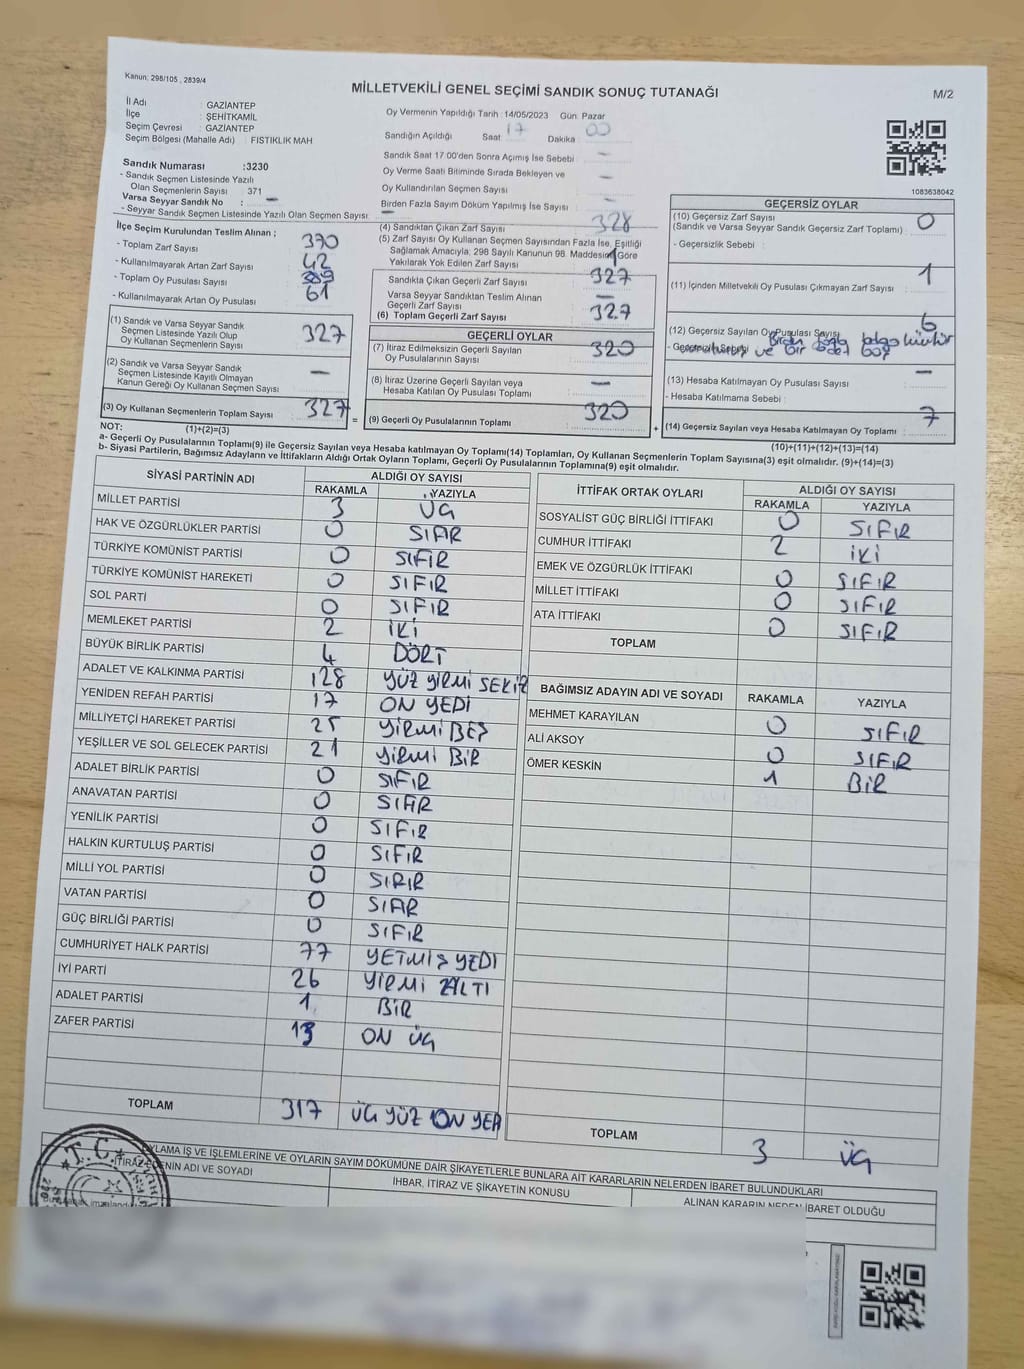 Kanun; 298/105 , 2839/4
MİLLETVEKİLİ GENEL SEÇİMİ SANDIK SONUÇ TUTANAĞI
M/2
İl Adı : GAZİANTEP
İlçe : ŞEHİTKAMİL
Seçim Çevresi : GAZİANTEP
Seçim Bölgesi (Mahalle Adı) : FISTIKLIK MAH
Oy Vermenin Yapıldığı Tarih :14/05/2023 Gün: Pazar
Sandığın Açıldığı Saat 17 Dakika 00
Sandık Saat 17:00'den Sonra Açımış İse Sebebi –
Oy Verme Saati Bitiminde Sırada Bekleyen ve
Oy Kullandırılan Seçmen Sayısı –
Birden Fazla Sayım Döküm Yapılmış İse Sayısı –
1083638042
Sandık Numarası :3230
- Sandık Seçmen Listesinde Yazılı
Olan Seçmenlerin Sayısı : 371
Varsa Seyyar Sandık No : –
- Seyyar Sandık Seçmen Listesinde Yazılı Olan Seçmen Sayısı : –
İlçe Seçim Kurulundan Teslim Alınan ;
- Toplam Zarf Sayısı 370
- Kullanılmayarak Artan Zarf Sayısı 42
- Toplam Oy Pusulası Sayısı
- Kullanılmayarak Artan Oy Pusulası 61
(1) Sandık ve Varsa Seyyar Sandık
Seçmen Listesinde Yazılı Olup
Oy Kullanan Seçmenlerin Sayısı 327
(2) Sandık ve Varsa Seyyar Sandık
Seçmen Listesinde Kayıtlı Olmayan
Kanun Gereği Oy Kullanan Seçmen Sayısı –
(3) Oy Kullanan Seçmenlerin Toplam Sayısı 327
(1)+(2)=(3)
(4) Sandıktan Çıkan Zarf Sayısı 328
(5) Zarf Sayısı Oy Kullanan Seçmen Sayısından Fazla İse, Eşitliği
Sağlamak Amacıyla; 298 Sayılı Kanunun 98. Maddesine Göre
Yakılarak Yok Edilen Zarf Sayısı 1
Sandıkta Çıkan Geçerli Zarf Sayısı 327
Varsa Seyyar Sandıktan Teslim Alınan
Geçerli Zarf Sayısı –
(6) Toplam Geçerli Zarf Sayısı 327
GEÇERLİ OYLAR
(7) İtiraz Edilmeksizin Geçerli Sayılan
Oy Pusulalarının Sayısı 320
(8) İtiraz Üzerine Geçerli Sayılan veya
Hesaba Katılan Oy Pusulası Toplamı –
= (9) Geçerli Oy Pusulalarının Toplamı 320
GEÇERSİZ OYLAR
(10) Geçersiz Zarf Sayısı
(Sandık ve Varsa Seyyar Sandık Geçersiz Zarf Toplamı) : 0
- Geçersizlik Sebebi :
(11) İçinden Milletvekili Oy Pusulası Çıkmayan Zarf Sayısı 1
(12) Geçersiz Sayılan Oy Pusulası Sayısı 6
- Geçersizlik Sebebi : Birden fazla ve bir adet boş
(13) Hesaba Katılmayan Oy Pusulası Sayısı –
- Hesaba Katılmama Sebebi :
+ (14) Geçersiz Sayılan veya Hesaba Katılmayan Oy Toplamı 7
(10)+(11)+(12)+(13)=(14)
NOT:
a- Geçerli Oy Pusulalarının Toplamı(9) ile Geçersiz Sayılan veya Hesaba katılmayan Oy Toplamı(14) Toplamları, Oy Kullanan Seçmenlerin Toplam Sayısına(3) eşit olmalıdır. (9)+(14)=(3)
b- Siyasi Partilerin, Bağımsız Adayların ve İttifakların Aldığı Ortak Oyların Toplamı, Geçerli Oy Pusulalarının Toplamına(9) eşit olmalıdır.
SİYASİ PARTİNİN ADI ALDIĞI OY SAYISI
RAKAMLA YAZIYLA
MİLLET PARTİSİ 3 ÜÇ
HAK VE ÖZGÜRLÜKLER PARTİSİ 0 SIFIR
TÜRKİYE KOMÜNİST PARTİSİ 0 SIFIR
TÜRKİYE KOMÜNİST HAREKETİ 0 SIFIR
SOL PARTİ 0 SIFIR
MEMLEKET PARTİSİ 2 İKİ
BÜYÜK BİRLİK PARTİSİ 4 DÖRT
ADALET VE KALKINMA PARTİSİ 128 YÜZ YİRMİ SEKİZ
YENİDEN REFAH PARTİSİ 17 ON YEDİ
MİLLİYETÇİ HAREKET PARTİSİ 25 YİRMİ BEŞ
YEŞİLLER VE SOL GELECEK PARTİSİ 21 YİRMİ BİR
ADALET BİRLİK PARTİSİ 0 SIFIR
ANAVATAN PARTİSİ 0 SIFIR
YENİLİK PARTİSİ 0 SIFIR
HALKIN KURTULUŞ PARTİSİ 0 SIFIR
MİLLİ YOL PARTİSİ 0 SIFIR
VATAN PARTİSİ 0 SIFIR
GÜÇ BİRLİĞİ PARTİSİ 0 SIFIR
CUMHURİYET HALK PARTİSİ 77 YETMİŞ YEDİ
İYİ PARTİ 26 YİRMİ ALTI
ADALET PARTİSİ 1 BİR
ZAFER PARTİSİ 13 ON ÜÇ
TOPLAM 317 ÜÇ YÜZ ON YEDİ
İTTİFAK ORTAK OYLARI ALDIĞI OY SAYISI
RAKAMLA YAZIYLA
SOSYALİST GÜÇ BİRLİĞİ İTTİFAKI 0 SIFIR
CUMHUR İTTİFAKI 2 İKİ
EMEK VE ÖZGÜRLÜK İTTİFAKI 0 SIFIR
MİLLET İTTİFAKI 0 SIFIR
ATA İTTİFAKI 0 SIFIR
TOPLAM
BAĞIMSIZ ADAYIN ADI VE SOYADI RAKAMLA YAZIYLA
MEHMET KARAYILAN 0 SIFIR
ALİ AKSOY 0 SIFIR
ÖMER KESKİN 1 BİR
TOPLAM 3 ÜÇ
OYLAMA İŞ VE İŞLEMLERİNE VE OYLARIN SAYIM DÖKÜMÜNE DAİR ŞİKAYETLERLE BUNLARA AİT KARARLARIN NELERDEN İBARET BULUNDUKLARI
İTİRAZ EDENİN ADI VE SOYADI
İHBAR, İTİRAZ VE ŞİKAYETİN KONUSU
ALINAN KARARIN NEDEN İBARET OLDUĞU
T.C.